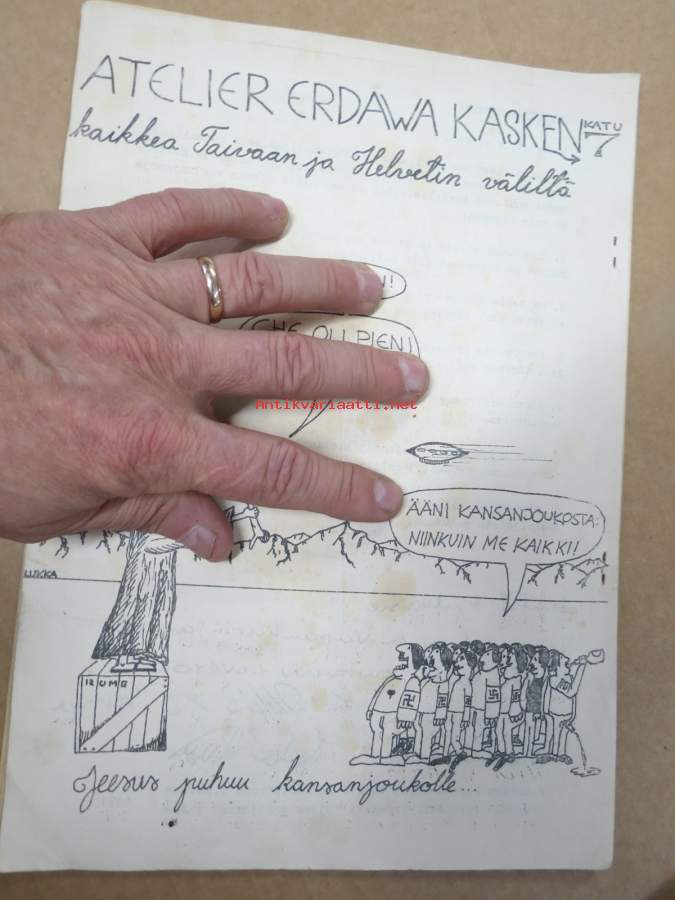 ATELIER ERDAWA KASKEN KATU 7
kaikkea Taivaan ja Helvetin väliltä
CHE OLI PIENI
Antikvariaatti.net
ÄÄNI KANSANJOUKOSTA:
NIINKUIN ME KAIKKI!
LUKKA
RUMB
Jeesus puhuu kansanjoukolle...